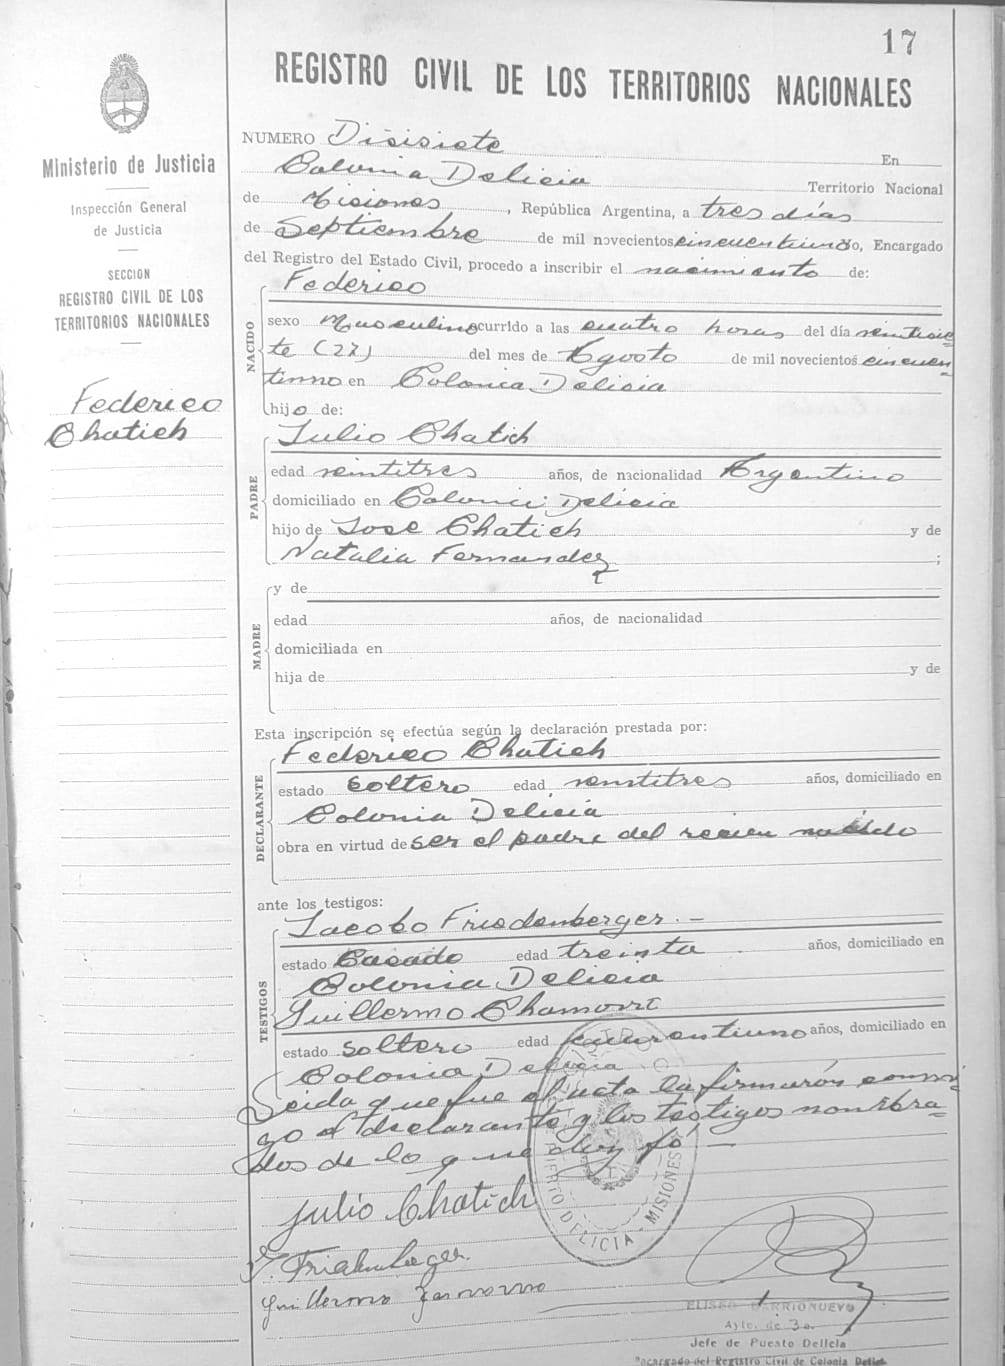 17
REGISTRO CIVIL DE LOS TERRITORIOS NACIONALES
Ministerio de Justicia
Inspección General
de Justicia
SECCION
REGISTRO CIVIL DE LOS
TERRITORIOS NACIONALES
Federico
Chatich
NUMERO Disisiete
En
Colonia Delicia Territorio Nacional
de Misiones, República Argentina, a tres días
de Septiembre de mil novecientos cincuentiuno, Encargado
del Registro del Estado Civil, procedo a inscribir el nacimiento de:
NACIDO
Federico
sexo Masculino ocurrido a las cuatro horas del día veintisie=
te (27) del mes de Agosto de mil novecientos cincuen=
tiuno en Colonia Delicia
hijo de:
PADRE
Julio Chatich
edad veintitres años, de nacionalidad Argentino
domiciliado en Colonia Delicia
hijo de Jose Chatich y de
Natalia Fernandez ;
MADRE
y de
edad años, de nacionalidad
domiciliada en
hija de y de
Esta inscripción se efectúa según la declaración prestada por:
DECLARANTE
Federico Chatich
estado soltero edad veintitres años, domiciliado en
Colonia Delicia
obra en virtud de ser el padre del recien nacido
ante los testigos:
TESTIGOS
Jacobo Friedenberger.-
estado Casado edad treinta años, domiciliado en
Colonia Delicia
Guillermo Chamorro
estado soltero edad cuarentiuno años, domiciliado en
Colonia Delicia
Leida que fue el acta la firmarón conmi
go el declarante y los testigos nombra=
dos de lo que doy fé.-
Julio Chatich
DELICIA - MISIONES
Guillermo
ELISEO BARRIONUEVO
Ayte. de 3a.
Jefe de Puesto Delicia
Encargado del Registro Civil de Colonia Delicia